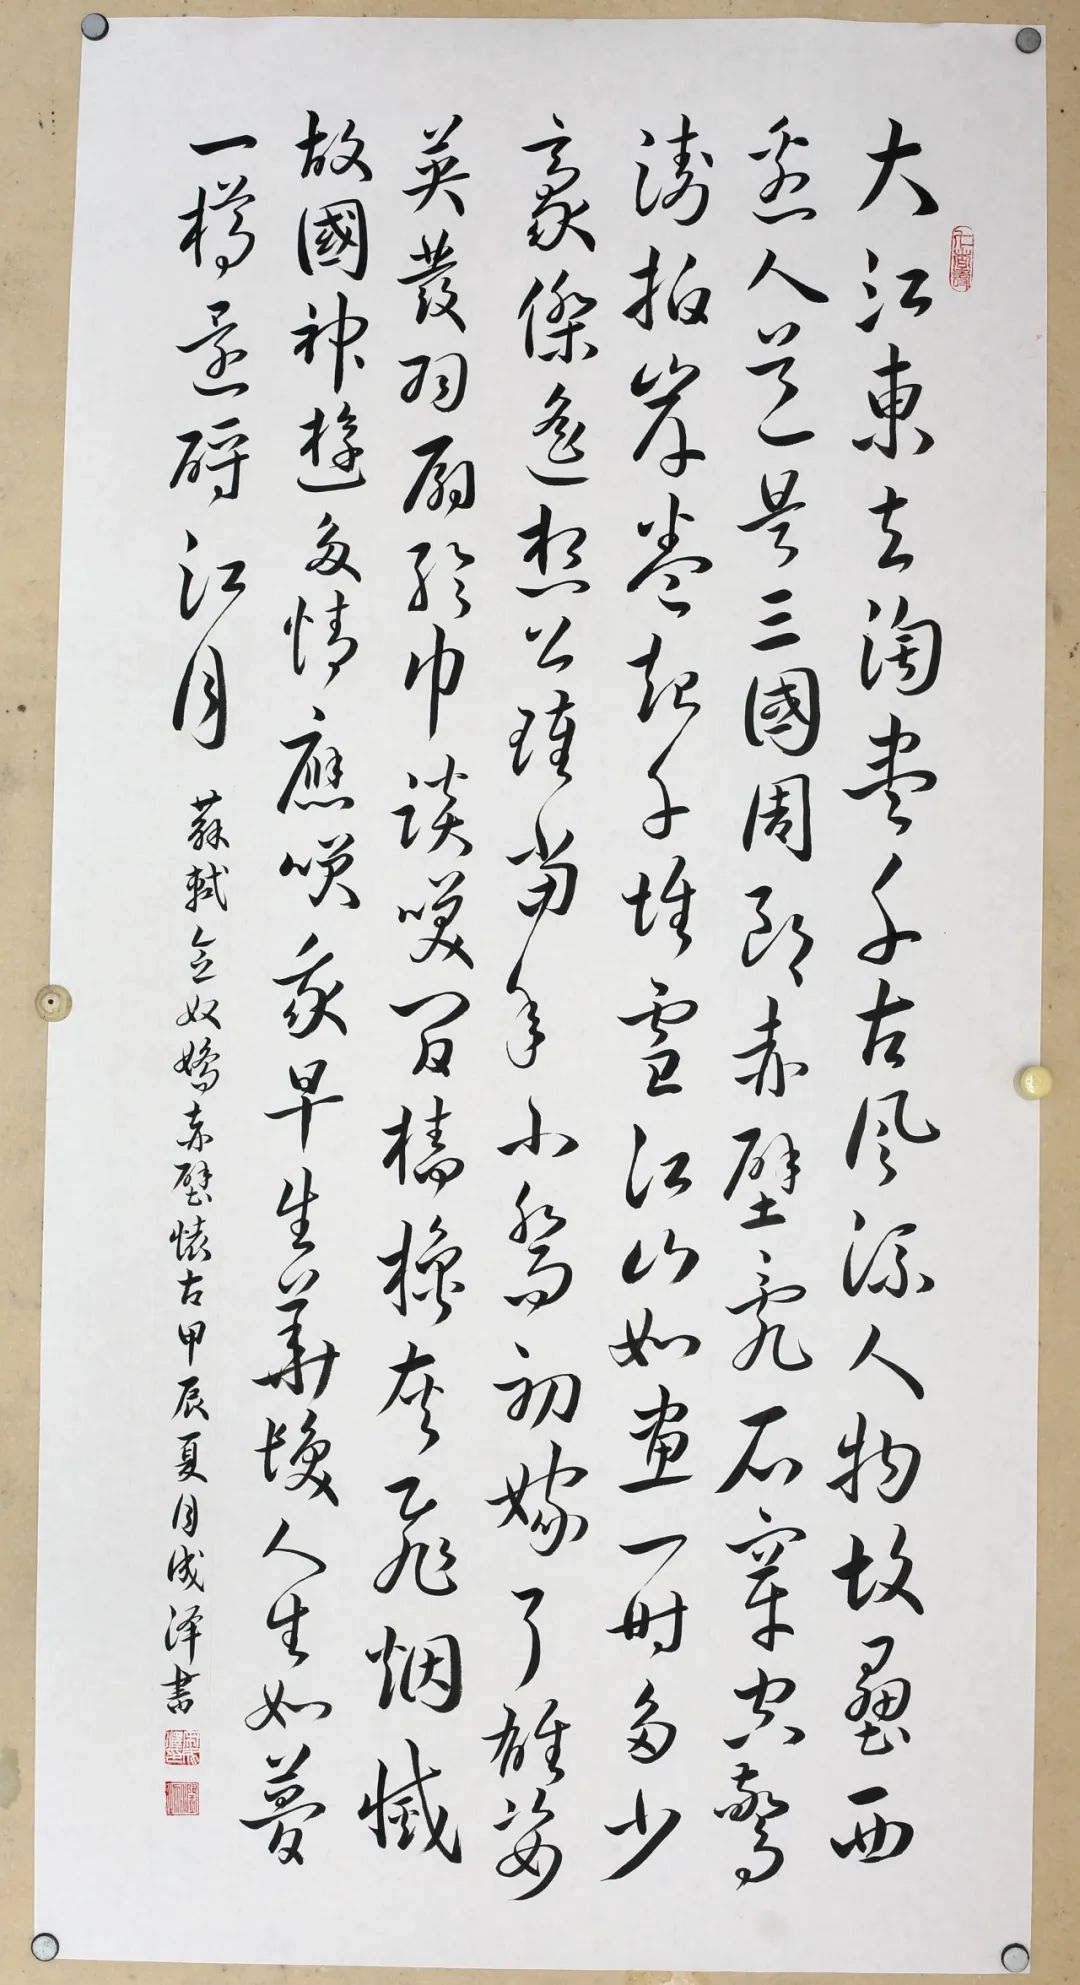 大江東去淘盡千古風流人物故壘西
邊人道是三國周郎赤壁亂石穿空驚
濤拍岸卷起千堆雪江山如畫一時多少
豪傑遙想公瑾當年小喬初嫁了雄姿
英發羽扇綸巾談笑間檣櫓灰飛烟滅
故國神遊多情應笑我早生華髮人生如夢
一樽還酹江月
蘇軾念奴嬌赤壁懷古甲辰夏月成澤書